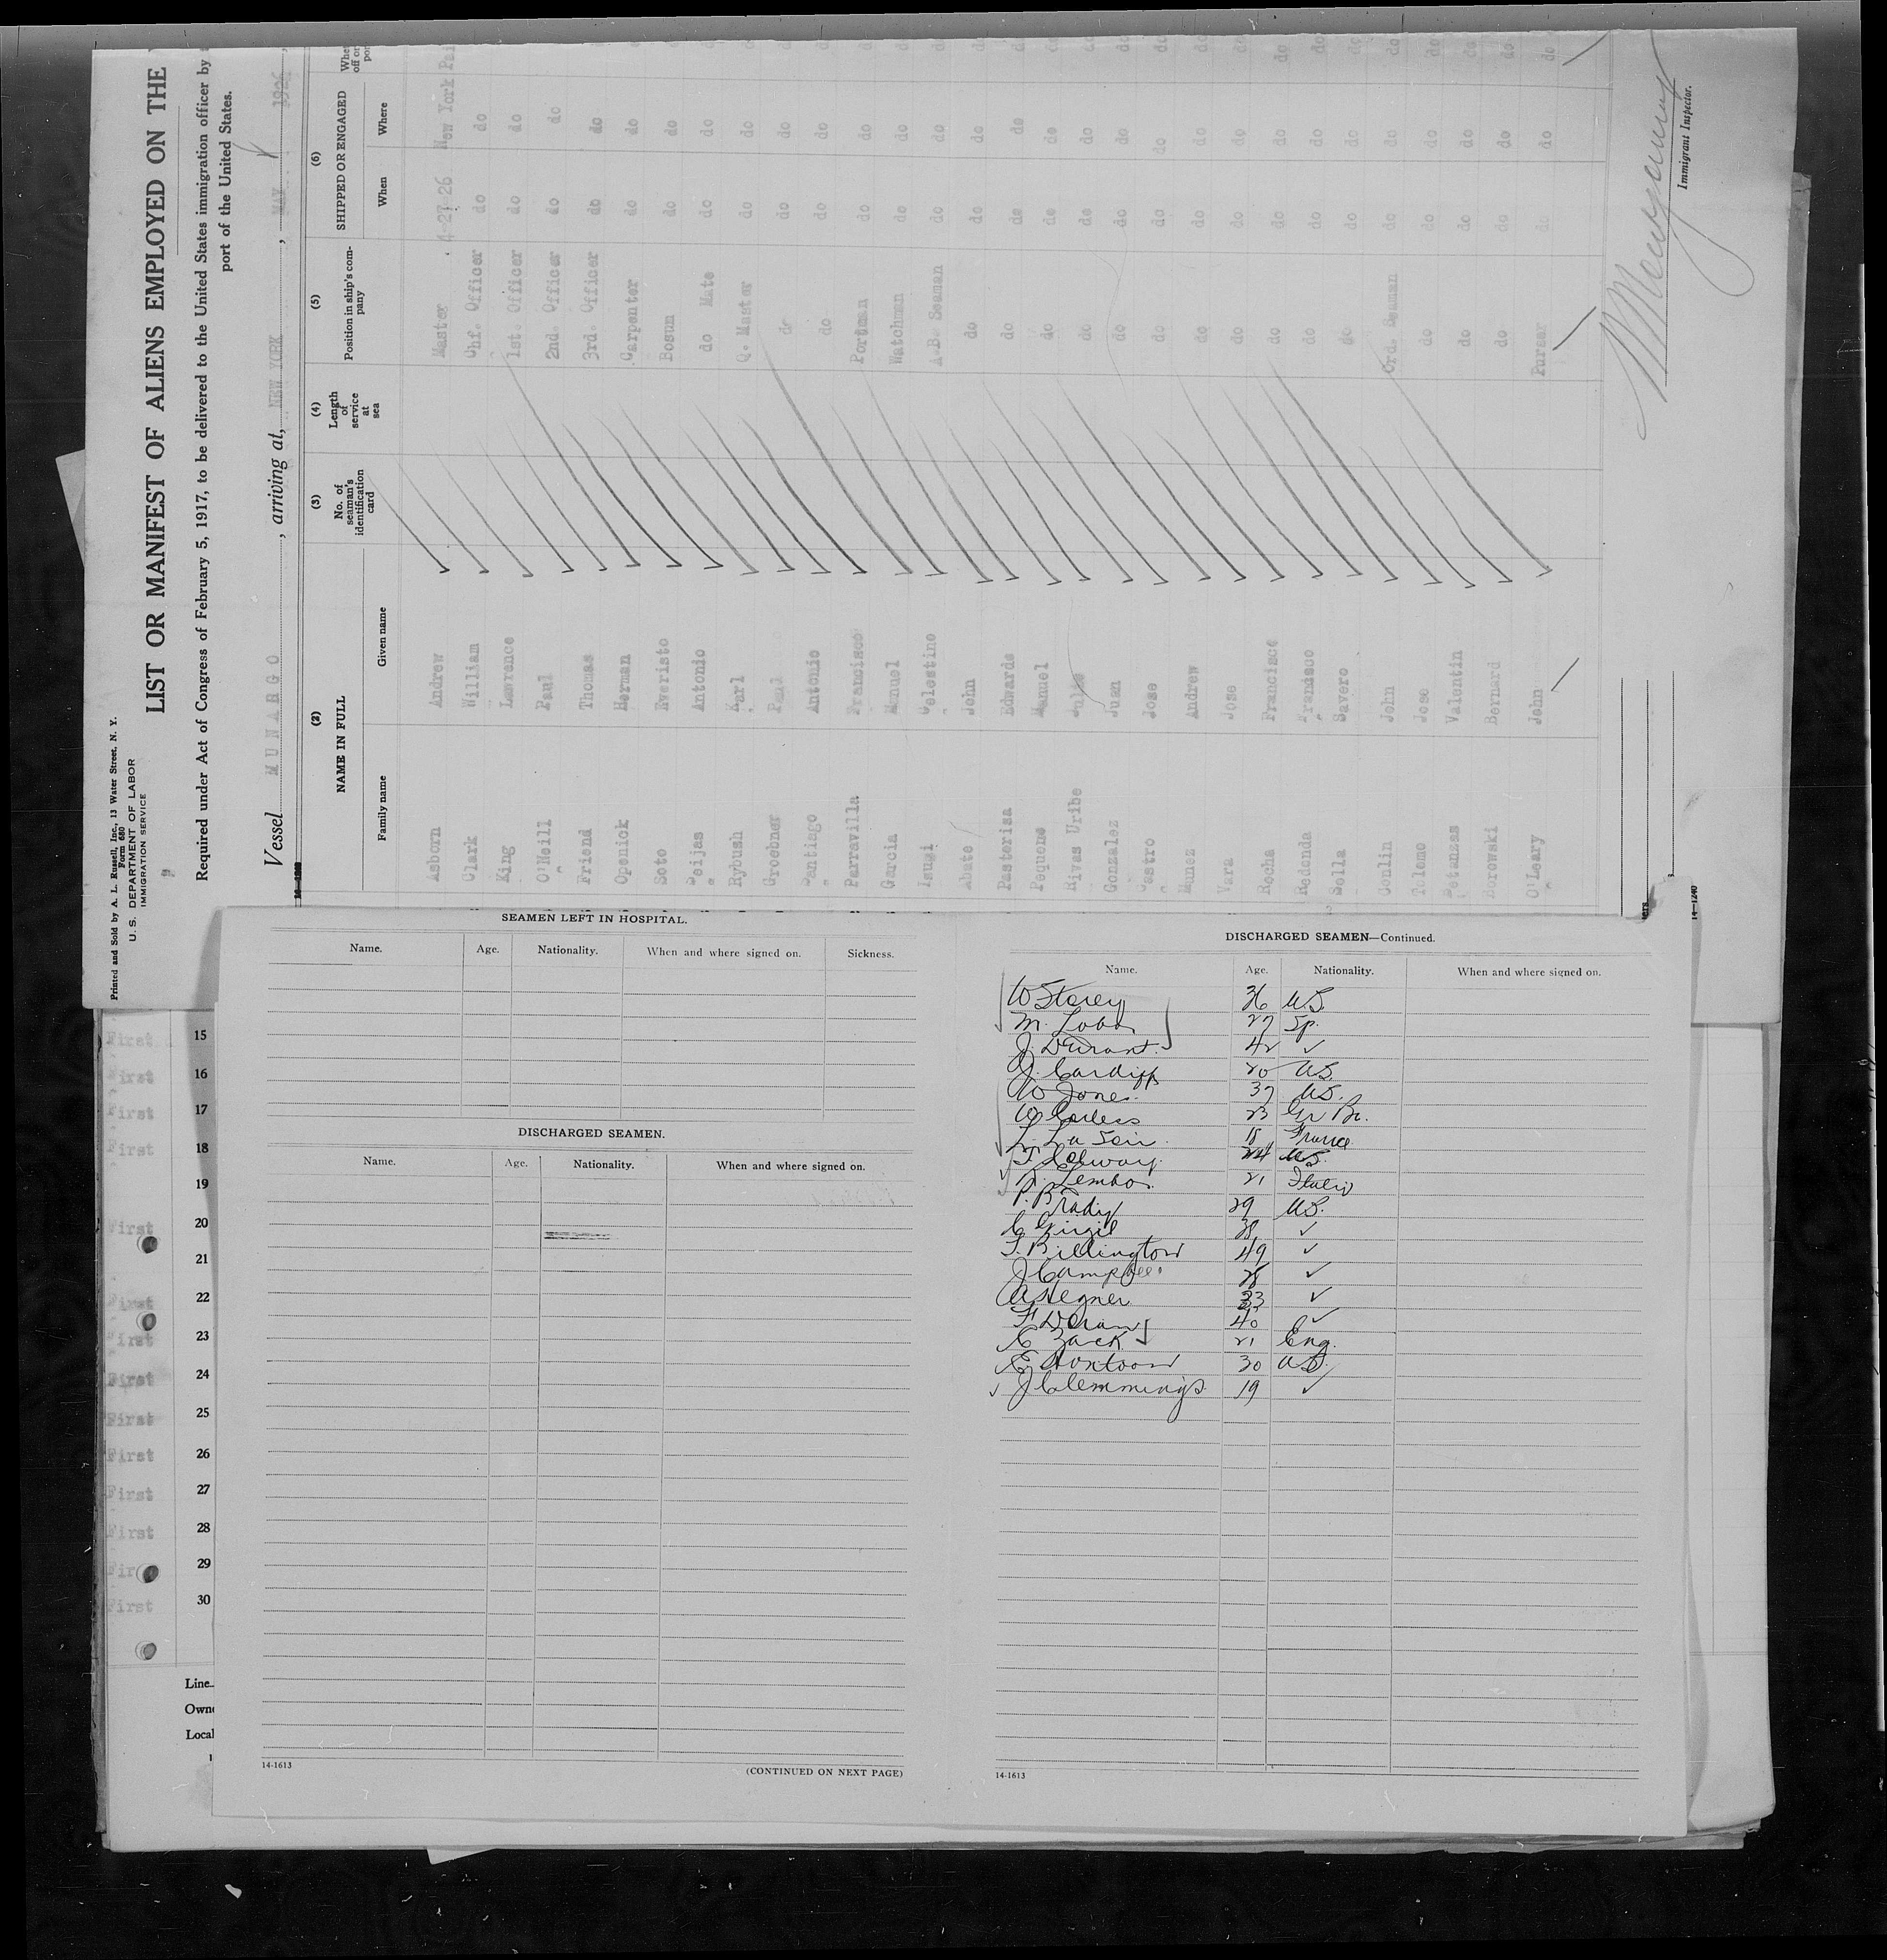 Printed and Sold by A. L. Russell, Inc., 13 Water Street, N. Y.
Form 680
U. S. DEPARTMENT OF LABOR
IMMIGRATION SERVICE
LIST OR MANIFEST OF ALIENS EMPLOYED ON THE
Required under Act of Congress of February 5, 1917, to be delivered to the United States immigration officer by
port of the United States.
Vessel MUNARGO, arriving at, NEW YORK, MAY 1926,
(2) (3) (4) (5) (6)
NAME IN FULL No. of seaman's identification card Length of service at sea Position in ship's company SHIPPED OR ENGAGED
Family name Given name When Where
Asborn Andrew Master 4-27 26 New York
Clark William Chf. Officer do do
King Lawrence 1st. Officer do do
O'Neill Paul 2nd. Officer do do
Friend Thomas 3rd. Officer do do
Openick Herman Carpenter do do
Soto Everisto Bosun do do
Seijas Antonio do Mate do do
Rybush Karl Q. Master do do
Groebner Paul do do do
Santiago Antonio do do do
Parravilla Francisco Portman do do
Garcia Manuel Watchman do do
Celestino A.B. Seaman do do
Abate John do do do
Pasterisa Edwards do do do
Pequeno Manuel do do do
Rivas Uribe do do do
Gonzalez Juan do do do
Castro Jose do do do
Munez Andrew do do do
Vara Jose do do do
Rocha Francisco do do do
Redonda Franisco do do do
Solla Savero do do do
Conlin John Ord. Seaman do do
Toleme Jose do do do
Betanzes Valentin do do do
Borowski Bernard do do do
O'Leary John Purser do do
Immigrant Inspector.
14—1240
First 15
First 16
First 17
First 18
19
First 20
21
First 22
First 23
First 24
First 25
First 26
First 27
First 28
First 29
First 30
Line
Own
Local
SEAMEN LEFT IN HOSPITAL.
Name. Age. Nationality. When and where signed on. Sickness.
DISCHARGED SEAMEN.
Name. Age. Nationality. When and where signed on.
14-1613
(CONTINUED ON NEXT PAGE)
DISCHARGED SEAMEN—Continued.
Name. Age. Nationality. When and where signed on.
W Storey 36 U.S.
M. Lobo 27 Sp.
J. Durant. 42 ✓
J. Cardiff 20 U.S.
W Jones 37 U.S.
W Corless 23 Gr Br.
L. La 18 France
T. 24 U.S.
Lembo 21
P. Brady 29 U.S.
C Girgil 38 ✓
T. Billington 49 ✓
J Campbell 28 ✓
A Segner 33 ✓
F Doran 40 ✓
C Zack 21 Eng.
E 30 U.S.
J Clemmings 19 ✓
14-1613